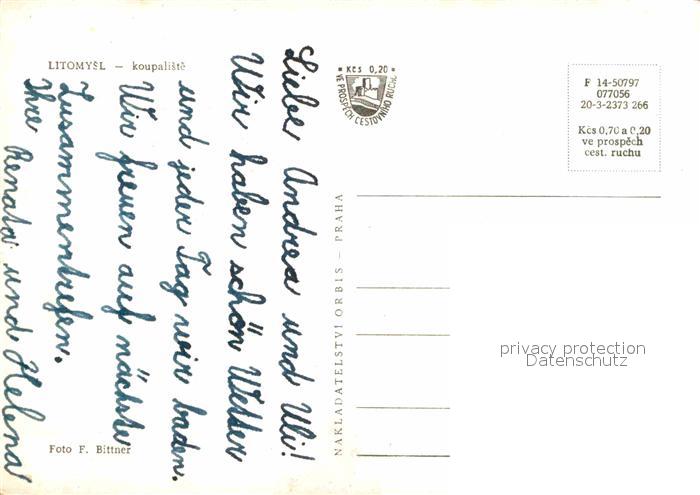 LITOMYŠL — koupaliště
Liebe Andrea und Uli!
Wir haben schön Wetter
und jeder Tag wir baden.
Wir freuen auf nächste
Zusammentrefen.
Ihre Renata und Helena
Foto F. Bittner
NAKLADATELSTVÍ ORBIS — PRAHA
Kčs 0,20
VE PROSPĚCH CESTOVNÍHO RUCHU
F 14-50797
077056
20-3-2373 266
Kčs 0,70 a 0,20
ve prospěch
cest. ruchu
privacy protection
Datenschutz